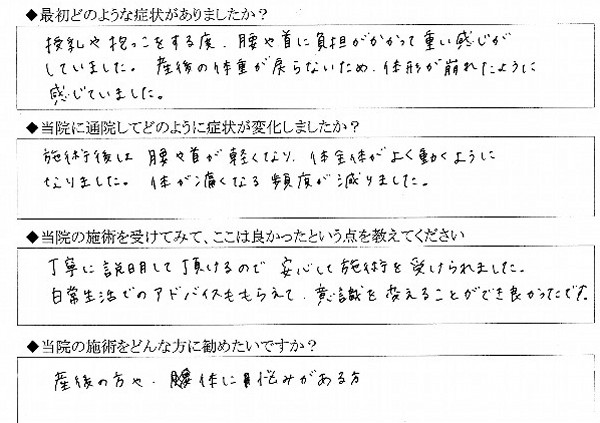 ◆最初どのような症状がありましたか？
授乳や抱っこをする度、腰や首に負担がかかって重い感じが
していました。産後の体重が戻らないため、体形が崩れたように
感じていました。
◆当院に通院してどのように症状が変化しましたか？
施術後は腰や首が軽くなり、体全体がよく動くように
なりました。体が痛くなる頻度が減りました。
◆当院の施術を受けてみて、ここは良かったという点を教えてください
丁寧に説明して頂けるので安心して施術を受けられました。
日常生活でのアドバイスももらえて、意識を変えることができ良かったです。
◆当院の施術をどんな方に勧めたいですか？
産後の方や、体に悩みがある方